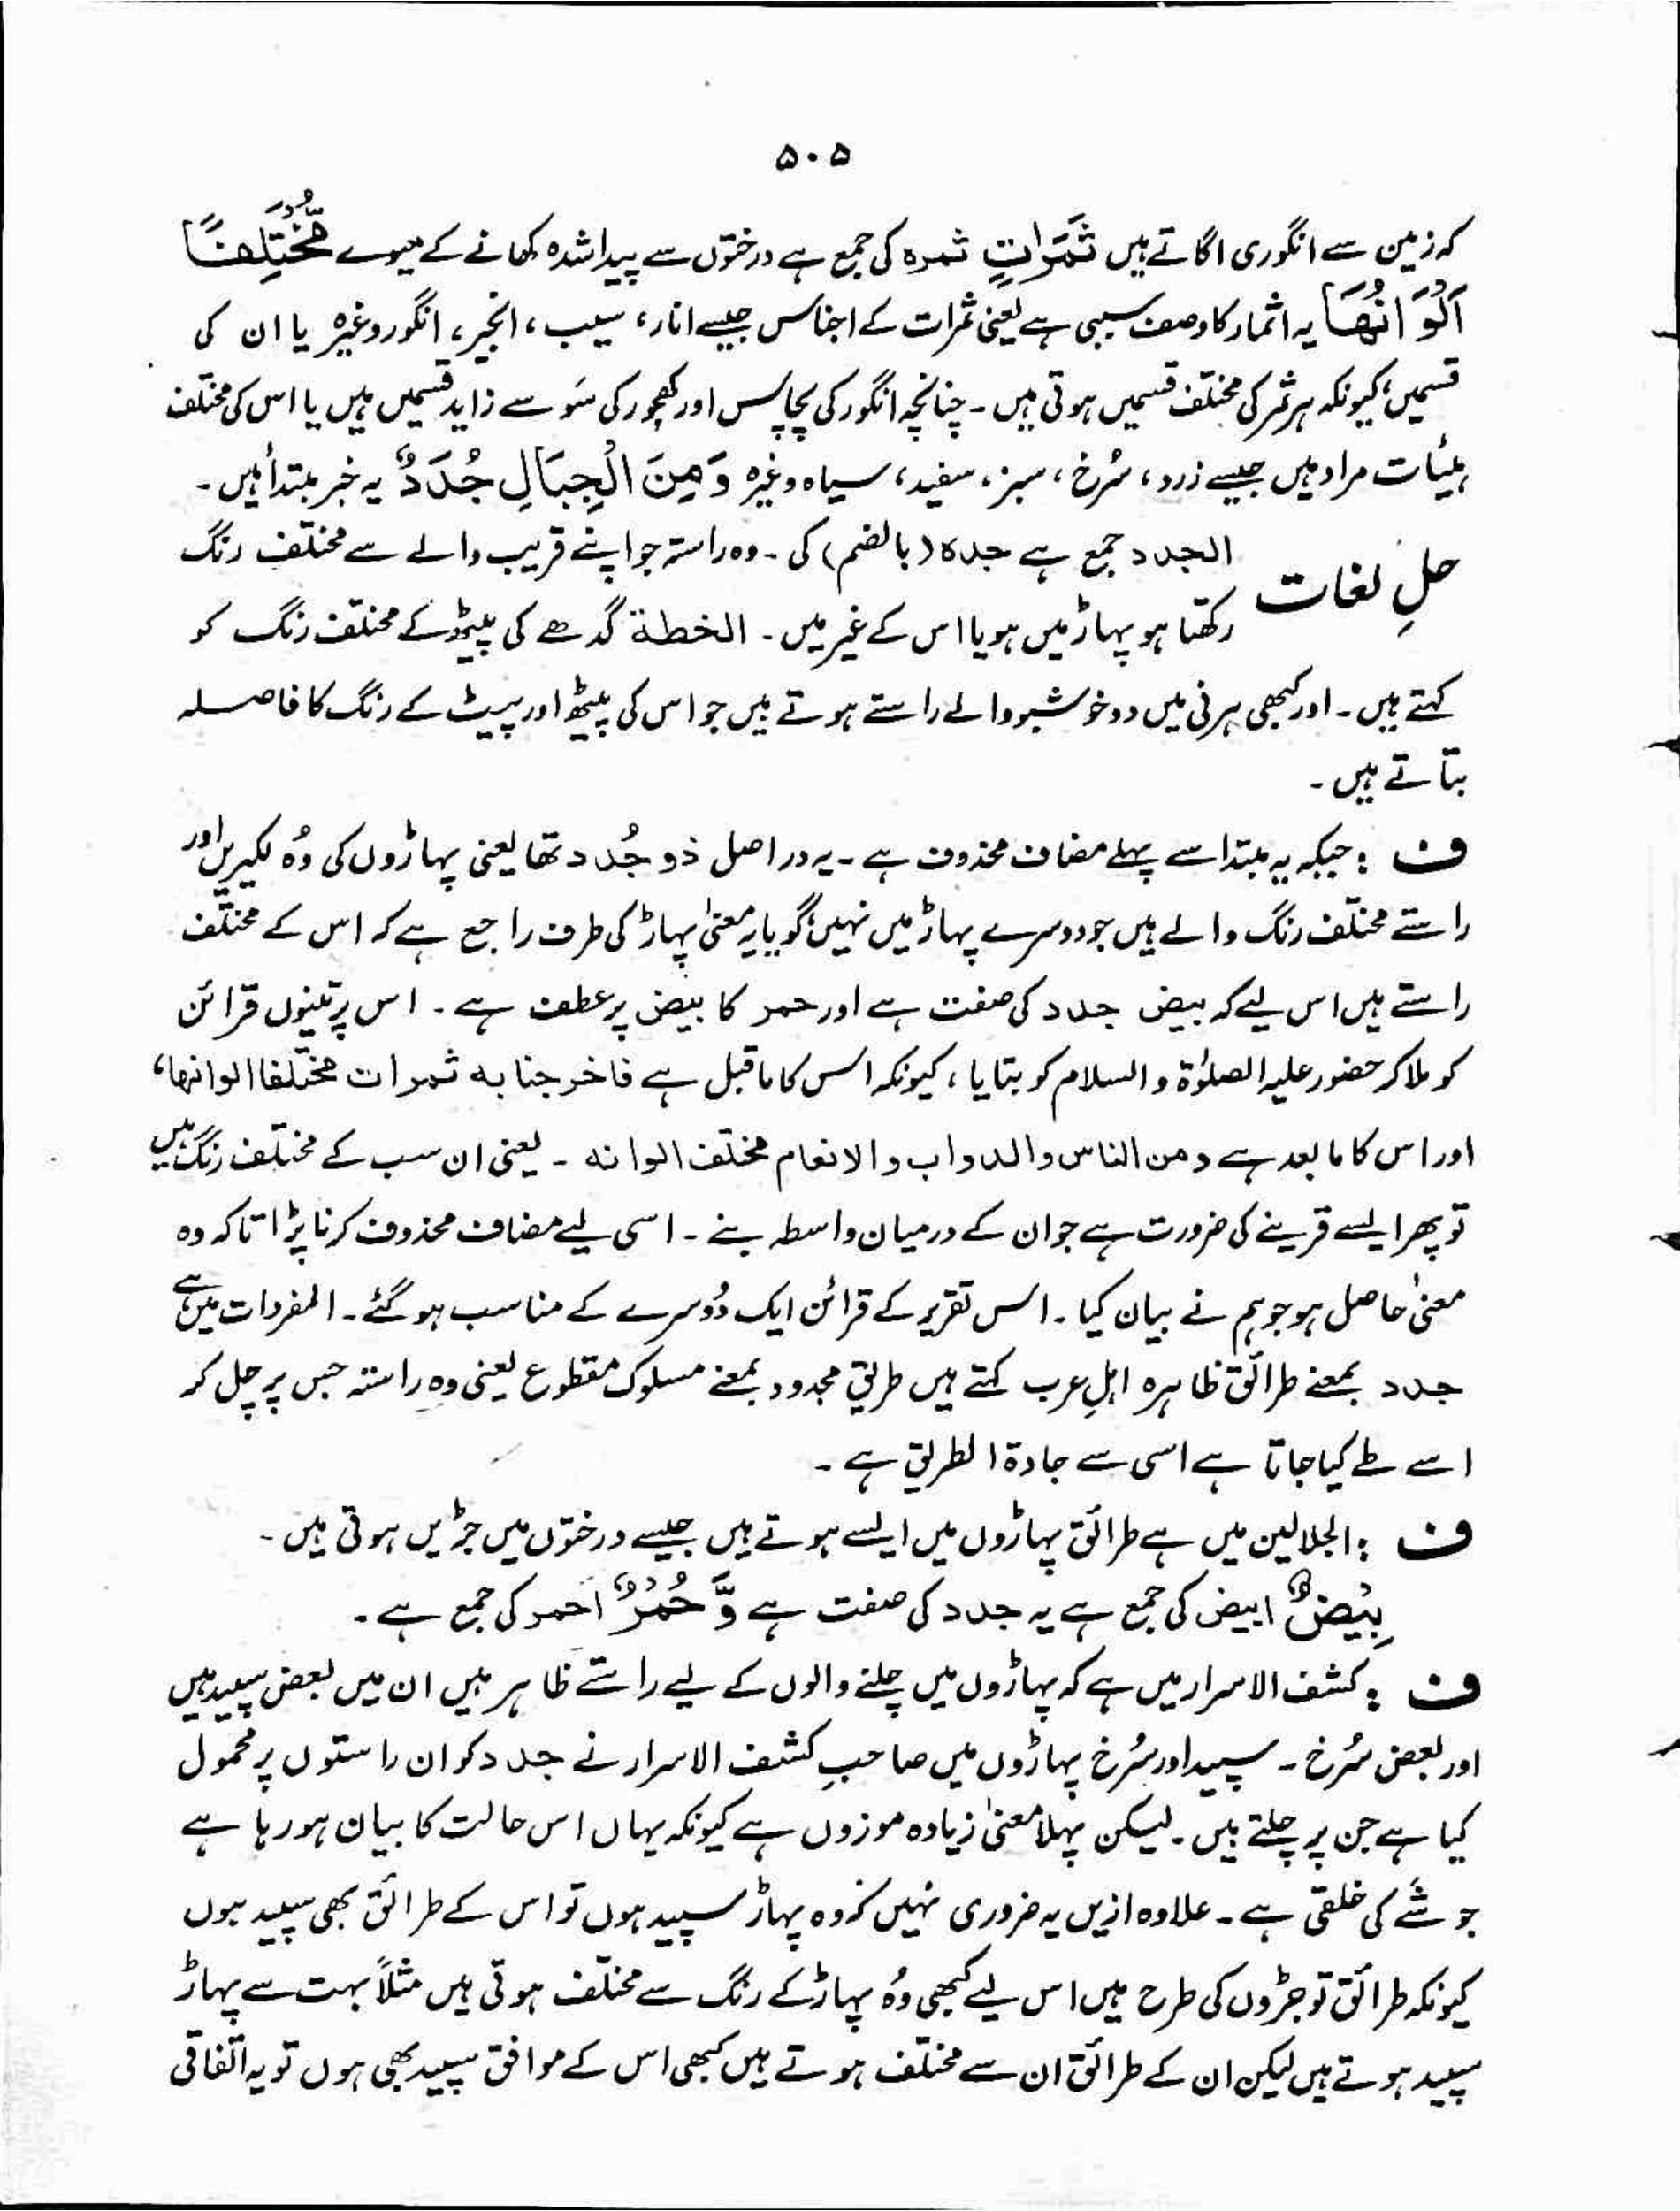 ۵۰۵
کہ زمین سے انگوری اگاتے ہیں ثَمَرَاتٍ ثمرہ کی جمع ہے درختوں سے پیدا شدہ کھانے کے میوے مُّخْتَلِفًا
اَلْوَانُهَا یہ اثمار کا وصف سببی ہے یعنی ثمرات کے اجناس جیسے انار، سیب، انجیر، انگور وغیرہ یا ان کی
قسمیں، کیونکہ ہر ثمر کی مختلف قسمیں ہوتی ہیں۔ چنانچہ انگور کی پچاس اور کھجور کی سَو سے زاید قسمیں ہیں یا اس کی مختلف
ہیٔات مراد ہیں جیسے زرد، سُرخ، سبز، سفید، سیاہ وغیرہ وَمِنَ الْجِبَالِ جُدَدٌ یہ خبر مبتدأ ہیں۔
حلِ لغات الجدد جمع ہے جدہ (بالضم) کی۔ وہ راستہ جو اپنے قریب والے سے مختلف رنگ
رکھتا ہو پہاڑ میں ہو یا اس کے غیر میں۔ الخطة گدھے کی پیٹھ کے مختلف رنگ کو
کہتے ہیں۔ اور کبھی ہرنی میں دو خوشبو والے راستے ہوتے ہیں جو اس کی پیٹھ اور پیٹ کے رنگ کا فاصلہ
بتاتے ہیں۔
ف : جبکہ یہ مبتدا سے پہلے مضاف محذوف ہے۔ یہ دراصل ذو جُدد تھا یعنی پہاڑوں کی وُہ لکیریں اور
راستے مختلف رنگ والے ہیں جو دوسرے پہاڑ میں نہیں، گویا یہ معنیٰ پہاڑ کی طرف راجع ہے کہ اس کے مختلف
راستے ہیں اس لیے کہ بیض جدد کی صفت ہے اور حمر کا بیض پر عطف ہے۔ اس پر تینوں قرائن
کو ملا کر حضور علیہ الصلوٰۃ والسلام کو بتایا، کیونکہ اس کا ماقبل ہے فاخرجنا به ثمرات مختلفا الوانها،
اور اس کا مابعد ہے ومن الناس والدواب والانعام مختلف الوانه۔ یعنی ان سب کے مختلف رنگ ہیں
تو پھر ایسے قرینے کی ضرورت ہے جو ان کے درمیان واسطہ بنے۔ اسی لیے مضاف محذوف کرنا پڑا تاکہ وہ
معنیٰ حاصل ہو جو ہم نے بیان کیا۔ اس تقریر کے قرائن ایک دُوسرے کے مناسب ہو گئے۔ المفردات میں ہے
جدد بمعنے طرائق ظاہرہ اہلِ عرب کہتے ہیں طریق مجدود بمعنے مسلوک مقطوع یعنی وہ راستہ جس پر چل کر
اسے طے کیا جاتا ہے اسی سے جادة الطریق ہے۔
ف : الجلالین میں ہے طرائق پہاڑوں میں ایسے ہوتے ہیں جیسے درختوں میں جڑیں ہوتی ہیں۔
بِيْضٌ ابیض کی جمع ہے یہ جدد کی صفت ہے وَّحُمْرٌ احمر کی جمع ہے۔
ف : کشف الاسرار میں ہے کہ پہاڑوں میں چلنے والوں کے لیے راستے ظاہر ہیں ان میں بعض سپید ہیں
اور بعض سُرخ۔ سپید اور سُرخ پہاڑوں میں صاحبِ کشف الاسرار نے جدد کو ان راستوں پر محمول
کیا ہے جن پر چلتے ہیں۔ لیکن پہلا معنیٰ زیادہ موزوں ہے کیونکہ یہاں اس حالت کا بیان ہو رہا ہے
جو شَے کی خلقی ہے۔ علاوہ ازیں یہ ضروری نہیں کہ وہ پہاڑ سپید ہوں تو اس کے طرائق بھی سپید ہوں
کیونکہ طرائق تو جڑوں کی طرح ہیں اس لیے کبھی وُہ پہاڑ کے رنگ سے مختلف ہوتی ہیں مثلاً بہت سے پہاڑ
سپید ہوتے ہیں لیکن ان کے طرائق ان سے مختلف ہوتے ہیں کبھی اس کے موافق سپید بھی ہوں تو یہ اتفاقی